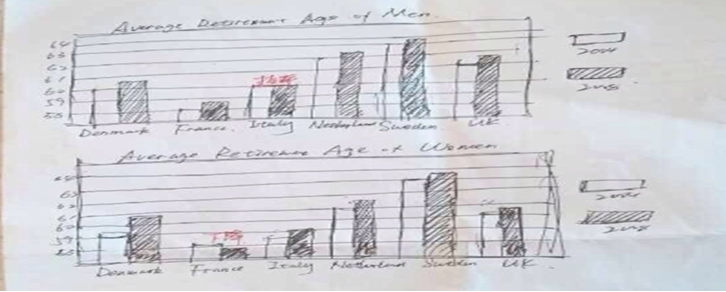 Average Retirement Age of Men.
64
63
62
61
60
59
58
Denmark France. Italy Netherland Sweden UK
2004
Average Retirement Age of Women
64
63
62
61
60
59
58
下降
Denmark France Italy Netherland Sweden UK
2004